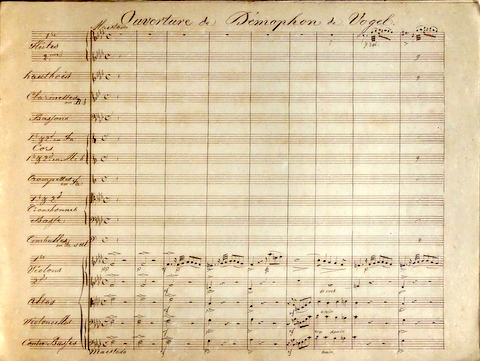 Ouverture de Démophon de Vogel.
Maestoso
1re
Flûtes
2me
hautbois
Clarinettes
en Si b
Bassons
1er & 2d en Fa
Cors
1er & 2d en Mi b
Trompettes
en Fa
1er & 2d
Trombonnes
Basse
Timballes
1rs
Violons
2ds
Altos
Violoncelles
Contre Basses
Maestoso